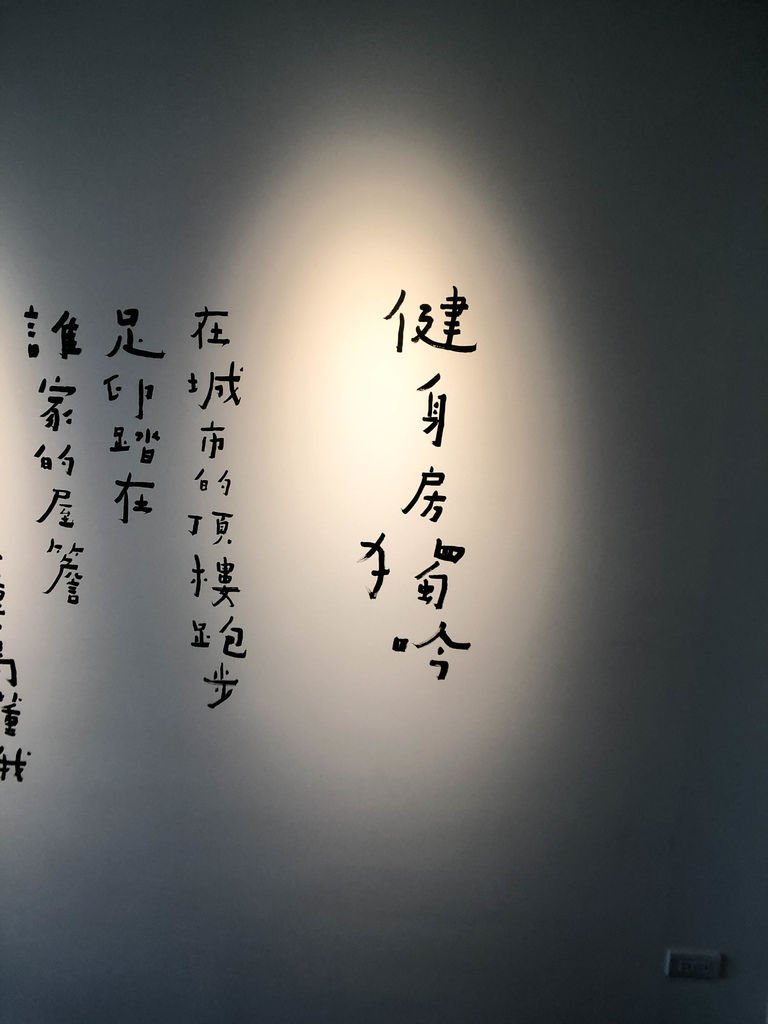 健身房獨吟
在城市的頂樓跑步
足印踏在
誰家的屋簷